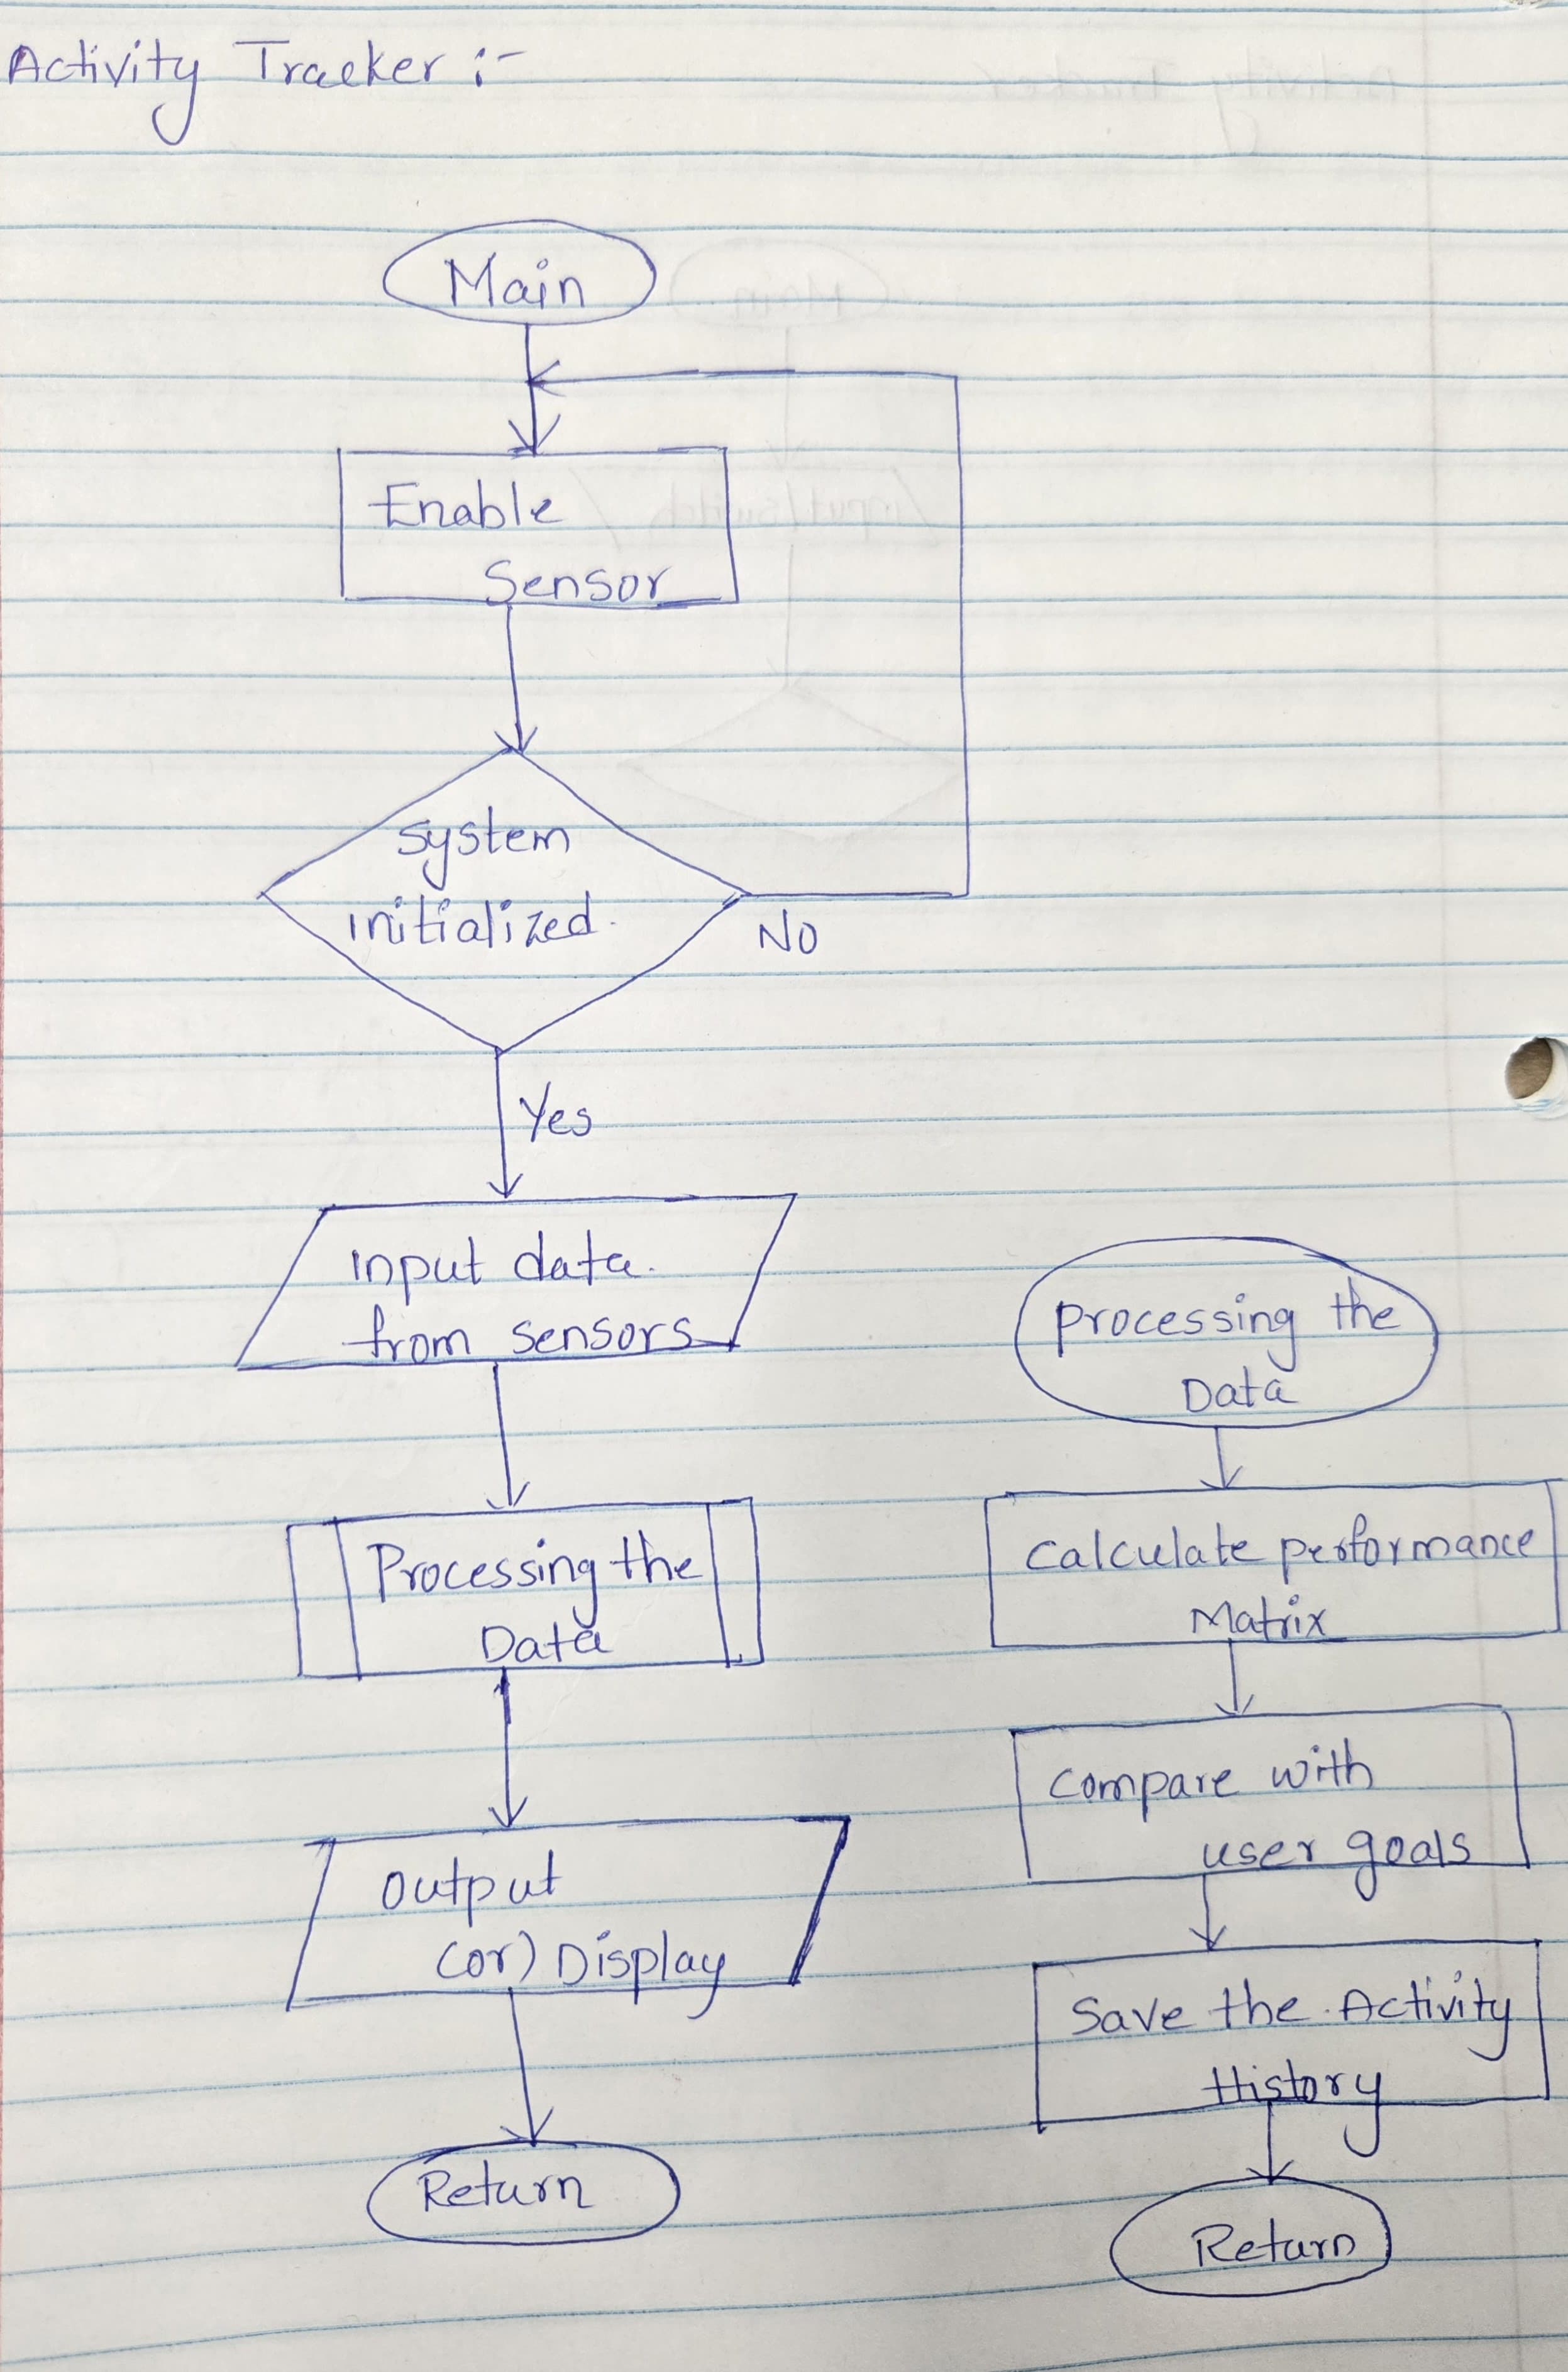 Activity Tracker :-
Main
Enable
Sensor
System
initialized.
NO
Yes
input data.
from sensors
Processing the
Data
Output
(or) Display
Return
Processing the
Data
Calculate performance
Matrix
Compare with
user goals
Save the Activity
History
Return